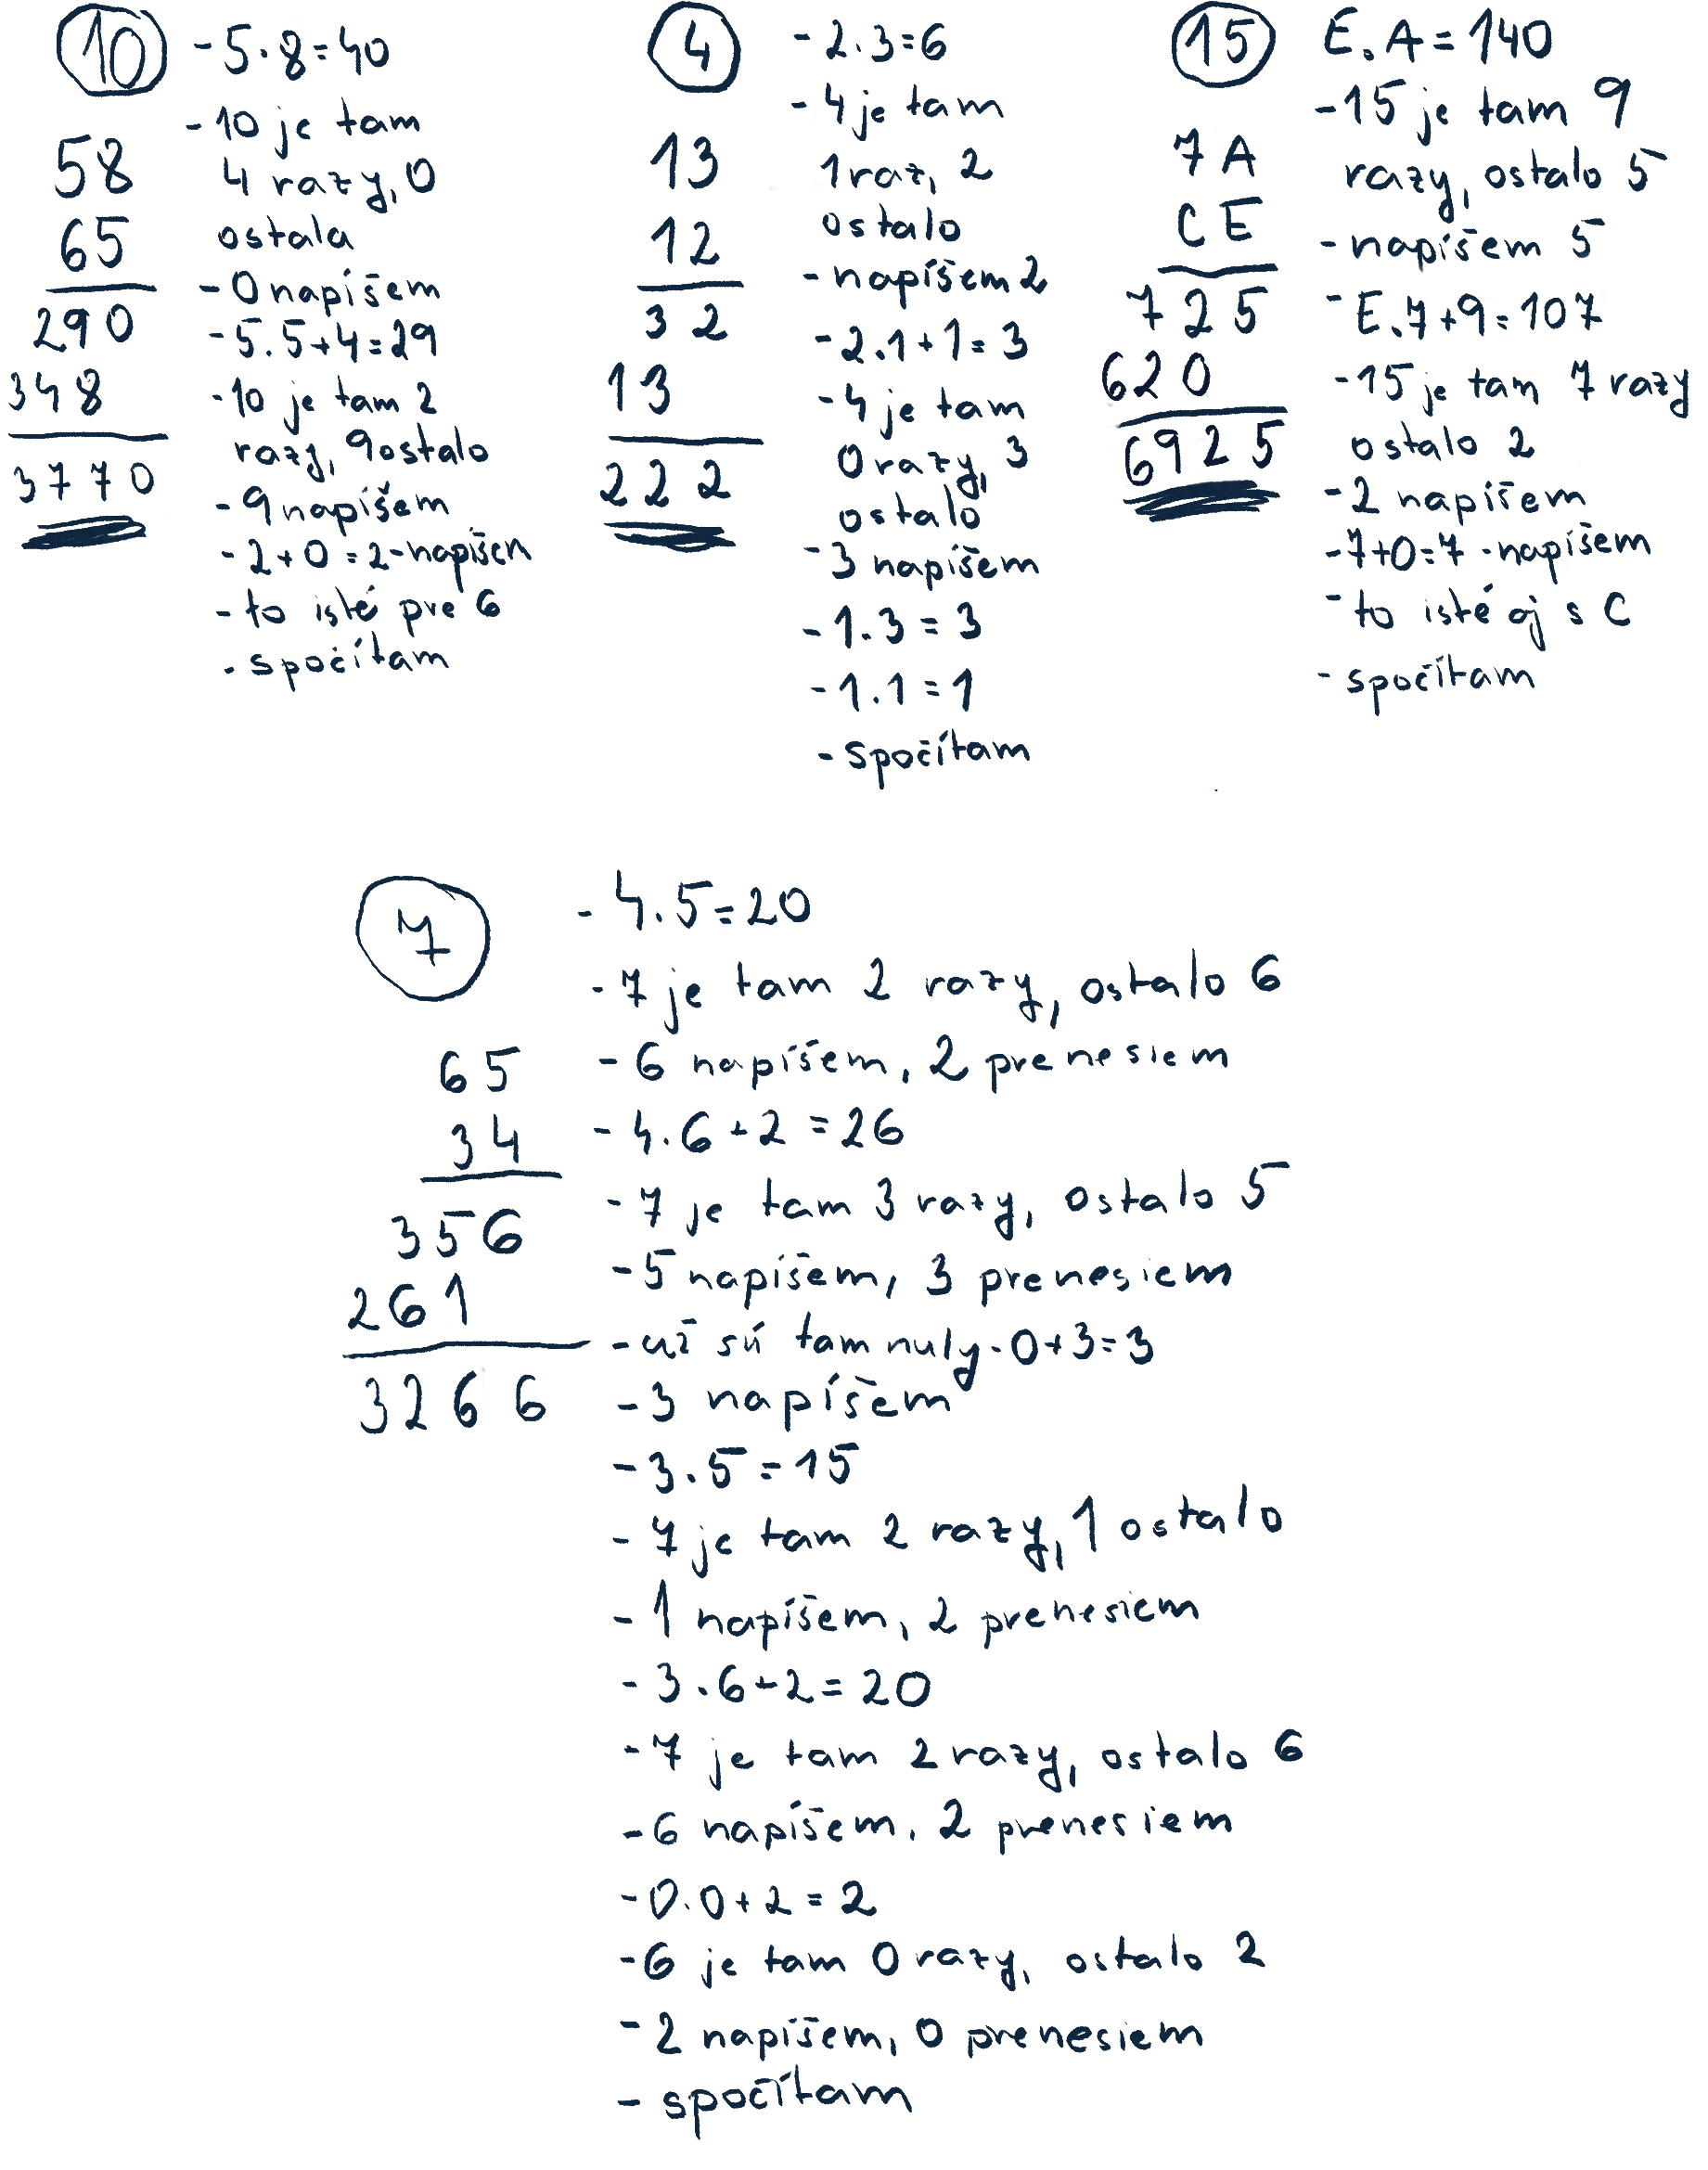 10
- 5.8=40
- 10 je tam
4 razy, 0
ostala
- 0 napíšem
- 5.5+4=29
- 10 je tam 2
razy, 9 ostalo
- 9 napíšem
- 2+0=2-napíšem
- to isté pre 6
- spočítam
58
65
290
348
3770
4
- 2.3=6
- 4 je tam
1 raz, 2
ostalo
- napíšem 2
- 2.1+1=3
- 4 je tam
0 razy, 3
ostalo
- 3 napíšem
- 1.3=3
- 1.1=1
- spočítam
13
12
32
13
222
15
E.A=140
- 15 je tam 9
razy, ostalo 5
- napíšem 5
- E.7+9=107
- 15 je tam 7 razy
ostalo 2
- 2 napíšem
- 7+0=7-napíšem
- to isté aj s C
- spočítam
7A
CE
725
620
6925
7
65
34
356
261
3266
- 4.5=20
- 7 je tam 2 razy, ostalo 6
- 6 napíšem, 2 prenesiem
- 4.6+2=26
- 7 je tam 3 razy, ostalo 5
- 5 napíšem, 3 prenesiem
- už sú tam nuly-0+3=3
- 3 napíšem
- 3.5=15
- 7 je tam 2 razy, 1 ostalo
- 1 napíšem, 2 prenesiem
- 3.6+2=20
- 7 je tam 2 razy, ostalo 6
- 6 napíšem, 2 prenesiem
- 0.0+2=2
- 6 je tam 0 razy, ostalo 2
- 2 napíšem, 0 prenesiem
- spočítam